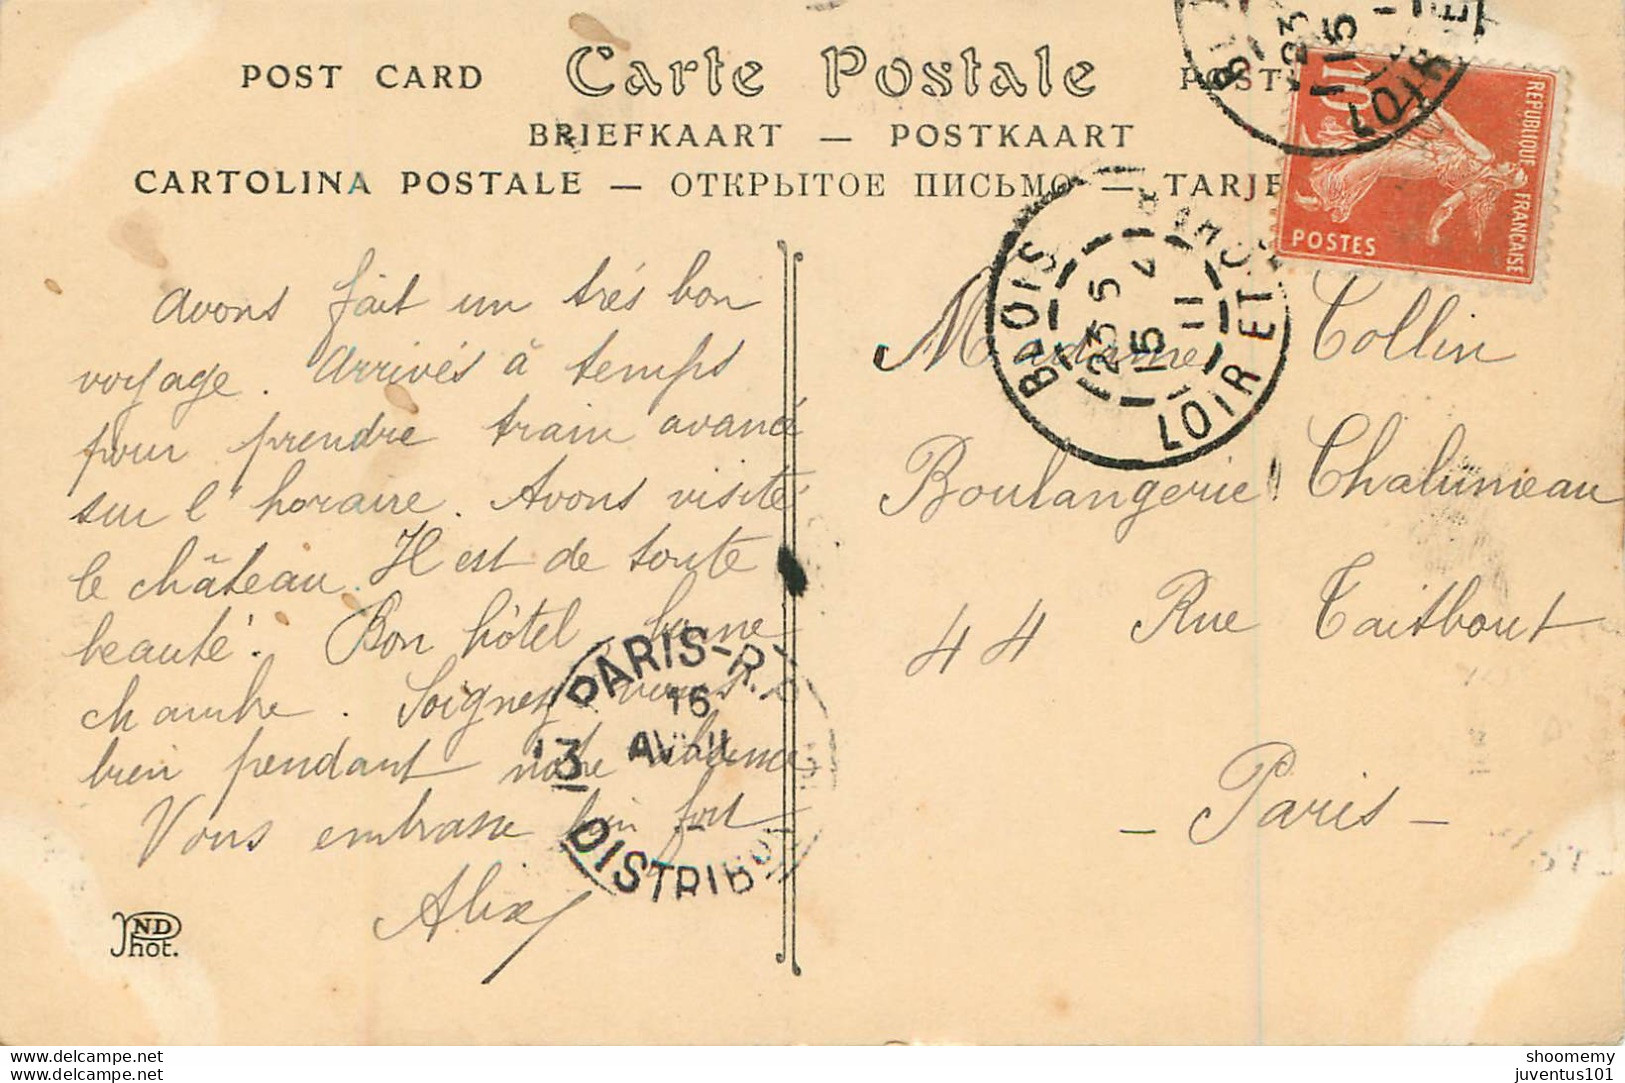 POST CARD Carte Postale POST
BRIEFKAART — POSTKAART
CARTOLINA POSTALE — ОТКРЫТОЕ ПИСЬМО — TARJE
BLOIS
LOIR ET C
23 5
15 4
11
23
15
LOIR
10
REPUBLIQUE FRANÇAISE
POSTES
Avons fait un très bon
voyage. Arrivés à temps
pour prendre train avancé
sur l'horaire. Avons visité
le château. Il est de toute
beauté. Bon hôtel, bonne
chambre. Soignez vous
bien pendant notre absence
Vous embrasse bien fort
Alix
Madame Collin
Boulangerie Chalumeau
44 Rue Taitbout
— Paris —
PARIS-R.P.
16
13 AVR 11
DISTRIBUTION
ND
Phot.
www.delcampe.net
www.delcampe.net
shoomemy
juventus101